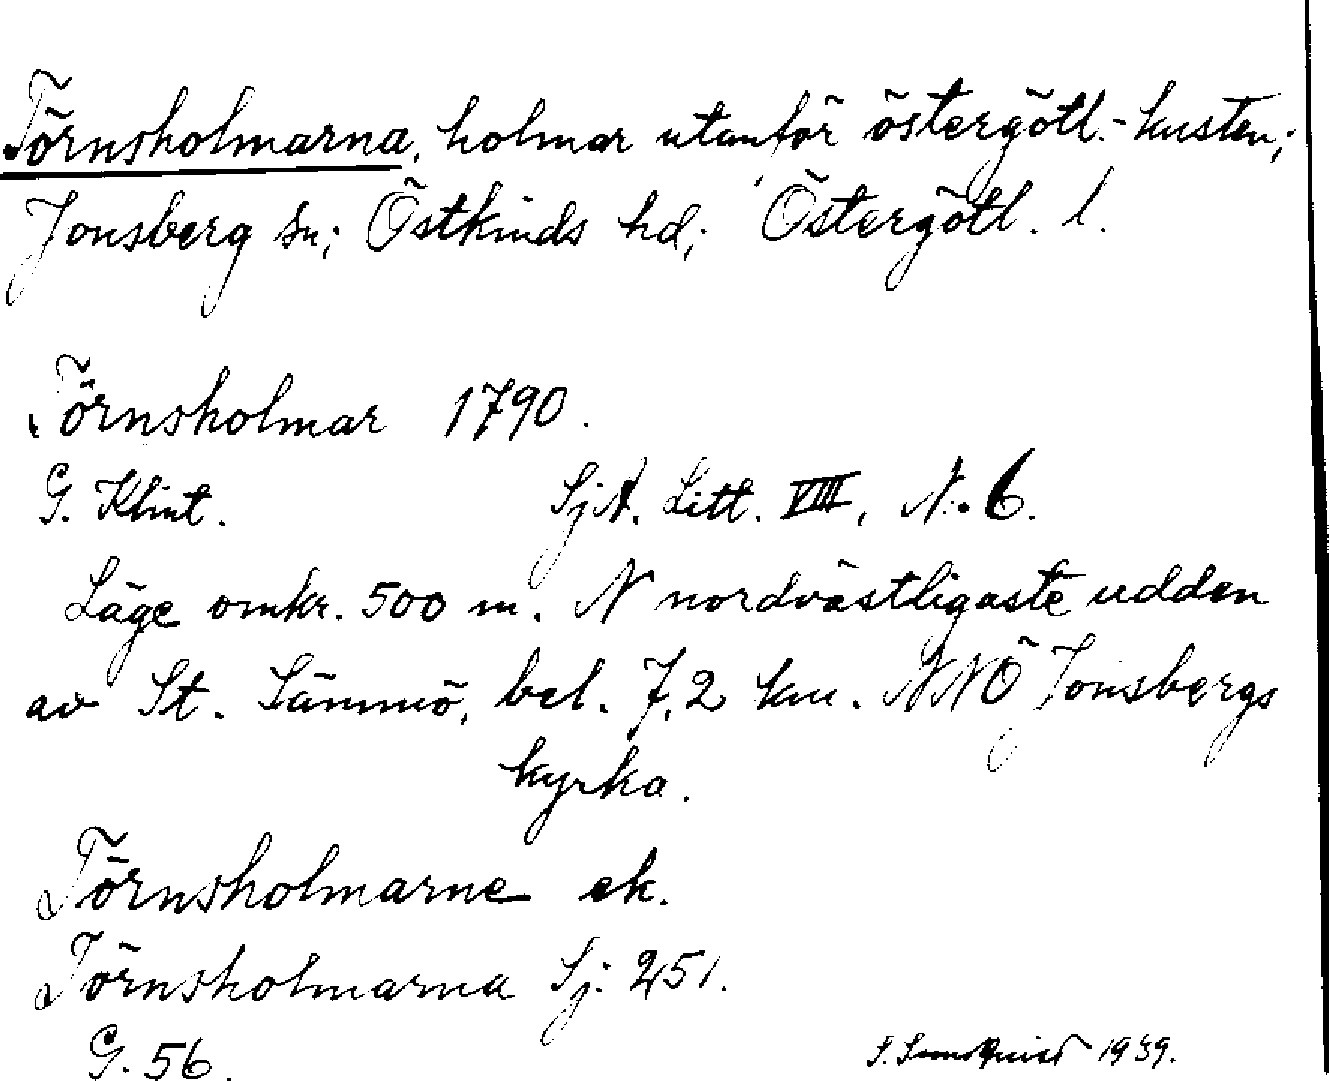 Törnsholmarna, holmar utanför östergötl.-kusten;
Jonsberg sn; Östkinds hd; Östergötl. l.
Törnsholmar 1790.
G. Klint. SjA. Litt. VIII, N:o 6.
Läge omkr. 500 m. N nordvästligaste udden
av St. Lämmö, bel. 7,2 km. NNÖ Jonsbergs
kyrka.
Törnsholmarne ek.
Törnsholmarna Sj: 251.
G. 56.
1939.